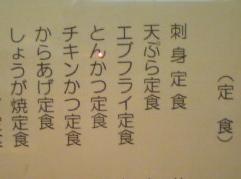 （定食）
刺身定食
天ぷら定食
エブフライ定食
とんかつ定食
チキンかつ定食
からあげ定食
しょうが焼定食